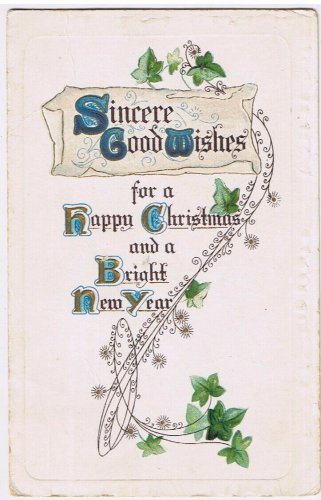 Sincere
Good Wishes
for a
Happy Christmas
and a
Bright
New Year